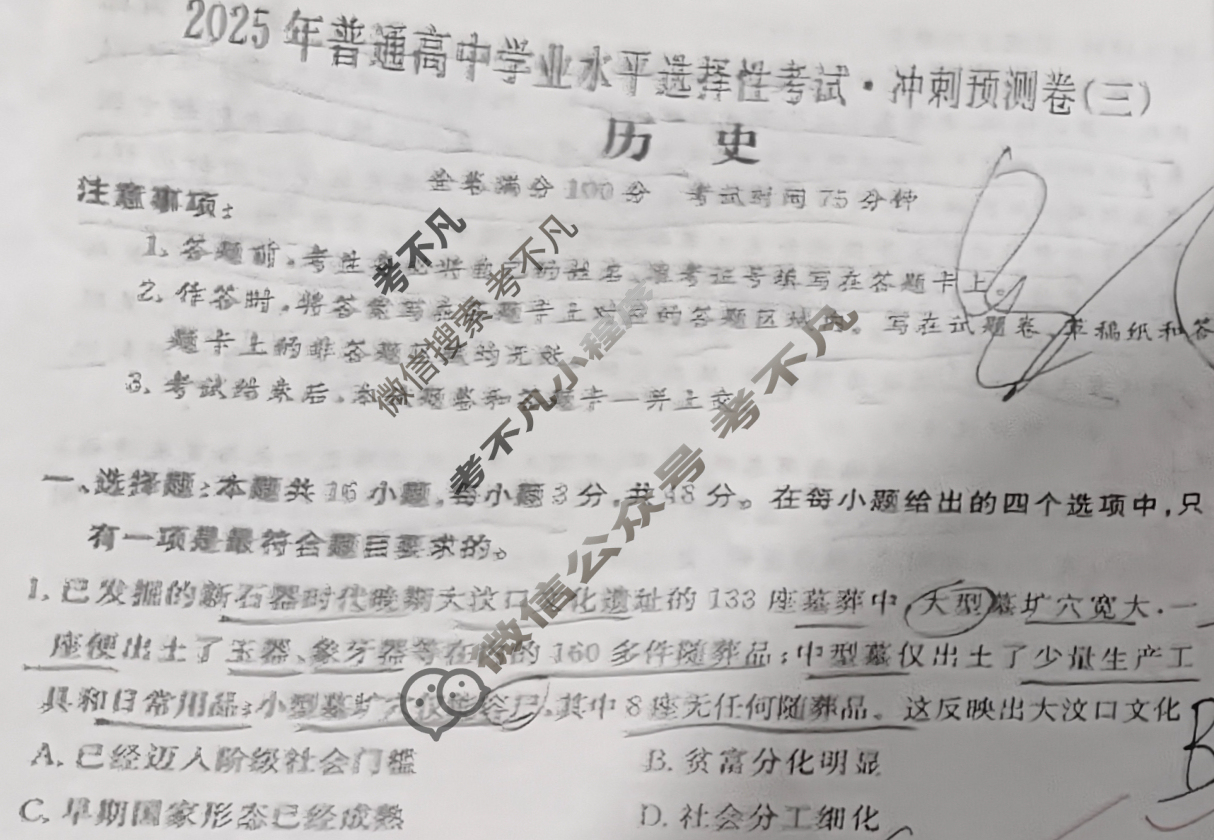 2025年普通高中学业水平选择性考试·冲刺预测卷(三)
历 史
全卷满分100分 考试时间75分钟
注意事项:
1.答题前,考生 将 的姓名、准考证号填写在答题卡上。
2.作答时,将答案写在答题卡上对应的答题区域内。写在试题卷、草稿纸和答
题卡上的非答题区域均无效
3.考试结束后,本试题卷和答题卡一并上交
一、选择题:本题共16小题,每小题3分,共48分。在每小题给出的四个选项中,只
有一项是最符合题目要求的。
1.已发掘的新石器时代晚期大汶口文化遗址的133座墓葬中,大型墓圹穴宽大.一
座便出土了玉器、象牙器等在内的160多件随葬品;中型墓仅出土了少量生产工
具和日常用品;小型墓圹穴仅能容尸,其中8座无任何随葬品。这反映出大汶口文化
A.已经迈入阶级社会门槛
B.贫富分化明显
C.早期国家形态已经成熟
D.社会分工细化
B
考不凡
微信搜索 考不凡
考不凡小程序
微信公众号 考不凡